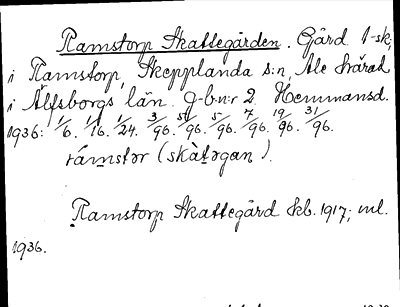 Ramstorp Skattegården. Gård 1-sk,
i Ramstorp, Skepplanda s:n, Ale härad
i Älfsborgs län. J-b-n:r 2. Hemmansd.
1936: 1/6. 1/16. 1/24. 3/96. 5/96. 7/96. 19/96. 31/96.
rámstər (skàt̀ərgan).
Ramstorp Skattegård Ekb. 1917; ml.
1936.